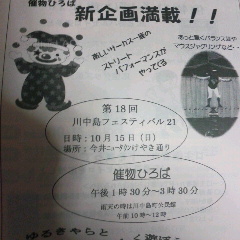 催物ひろば
新企画満載！！
楽しいサーカス一座の
ストリート
パフォーマンスが
やってくる
あっと驚くバランス芸や
マラスジャグリングなど
第18回
川中島フェスティバル21
日時：10月15日（日）
場所：今井ニュータウンけやき通り
催物ひろば
午後1時30分〜3時30分
雨天の時は川中島町公民館
午前10時〜12時
ゆるきゃらと